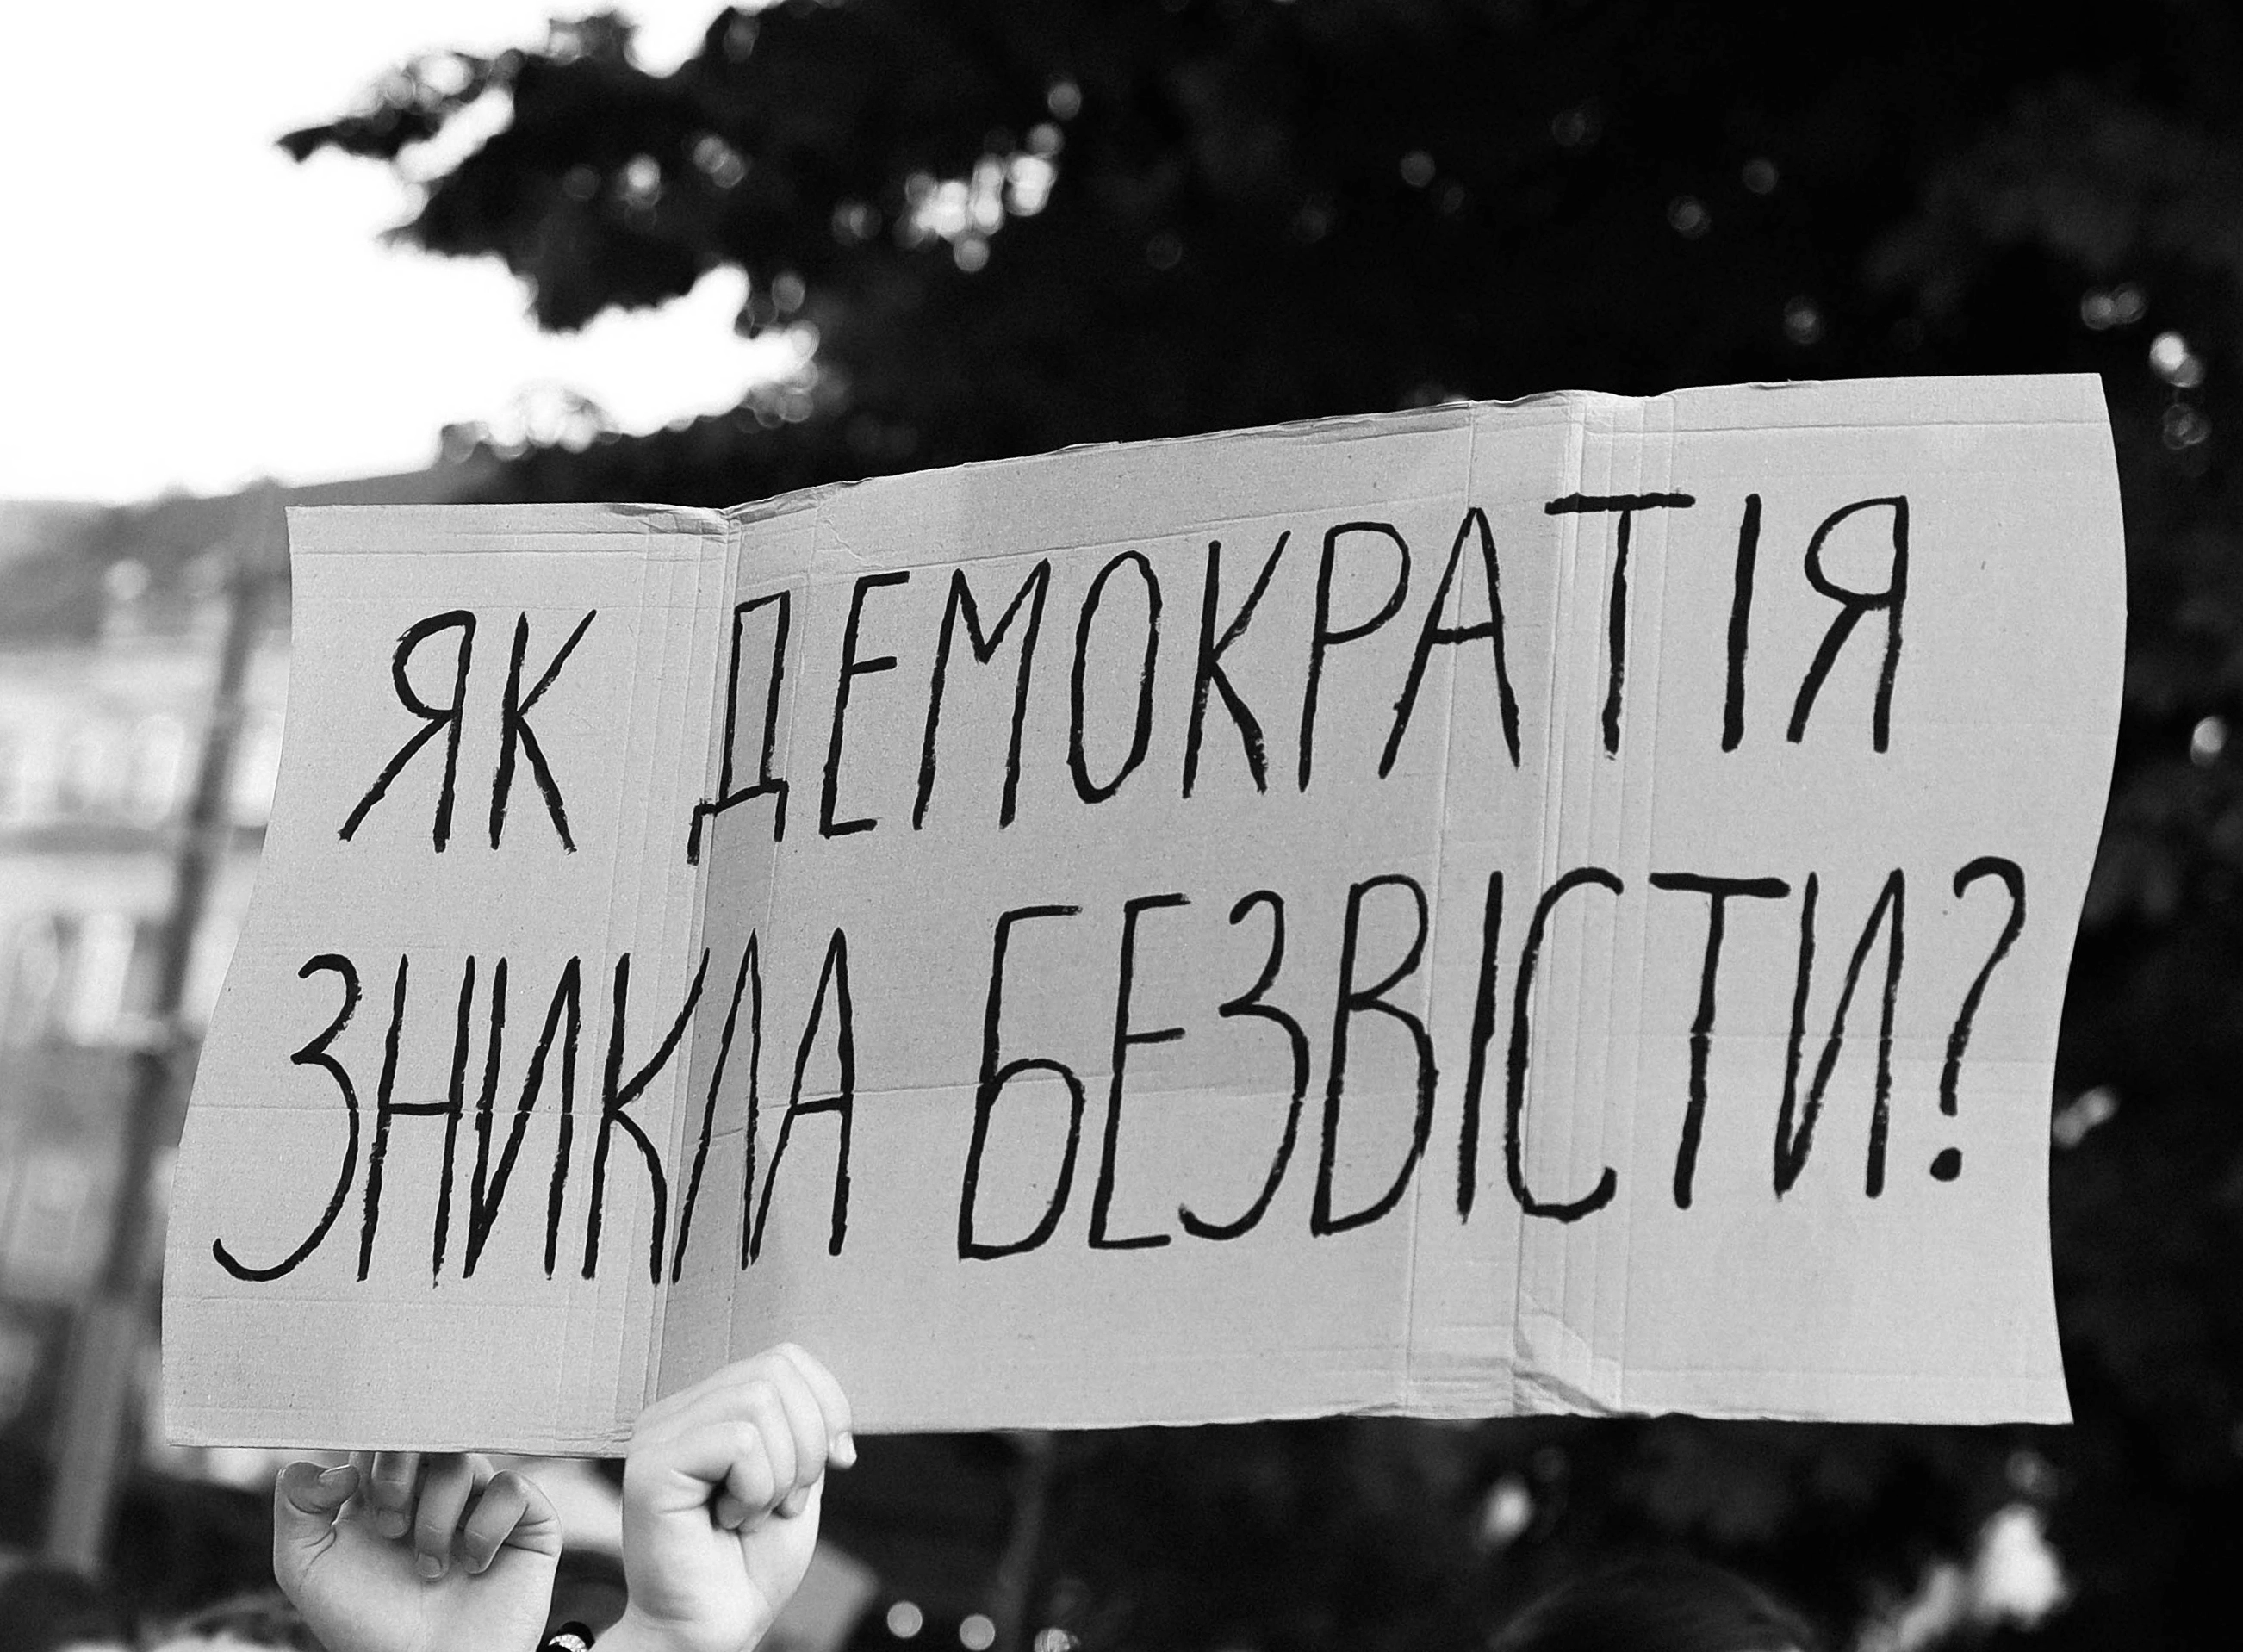 ЯК ДЕМОКРАТІЯ
ЗНИКЛА БЕЗВІСТИ?